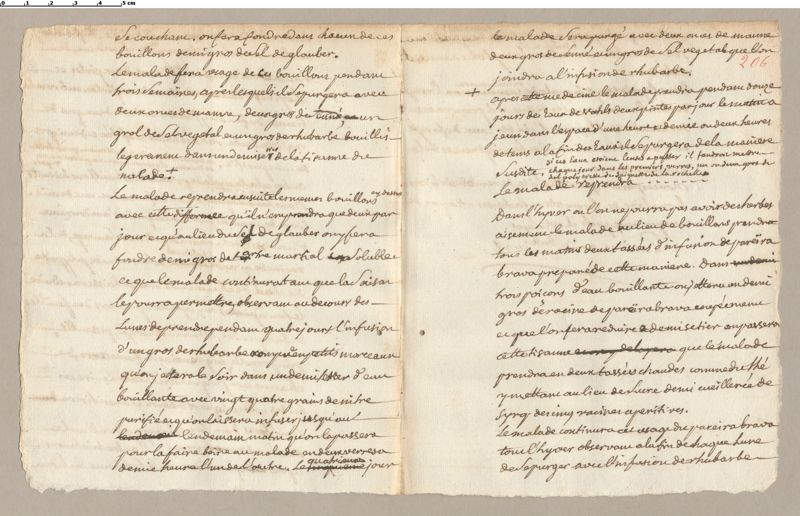 Se couchant, on fera fondre dans chacun de ces
bouillons demi gros de sel de glauber.
Le malade fera usage de ces bouillons pendant
trois semaines, apres lesquels il se purgera avec
deux onces de manne, deux gros de senné un
gros de sel vegetal et un gros de rhubarbe bouillis
legerement dans un demi de la tisanne du
malade +
Le malade reprendra ensuite les memes bouillons cy dessus
avec cette difference qu'il n'en prendra que deux par
jour et qu'au lieu du sel de glauber on y fera
fondre demi gros de tartre martial soluble
ce que le malade continuera tant que la saison
le pourra permettre, observant au decours des
Lunes de prendre pendant quatre jours l'infusion
d'un gros de rhubarbe rompu en petits morceaux
qu'on jettera le soir dans un demi setier d'eau
bouillante avec vingt quatre grains de nitre
purifié et qu'on laissera infuser jusqu'au
lendemain matin qu'on la passera
pour la faire boire au malade en deux verres a
demie heure l'un de l'autre. Le quatrieme jour
206
le malade sera purgé avec deux onces de manne
deux gros de senné et un gros de sel vegetal que l'on
joindra a l'infusion de rhubarbe.
+ apres cette medecine le malade prendra pendant douze
jours des eaux de deux pintes par jour le matin a
jeun dans l'espace d'une heure et demie ou deux heures
de tems a la fin des Eaux il se purgera de la maniere
Susdite. si les eaux etoient lentes a passer il faudroit mettre
chaque jour dans les premiers verres, un ou deux gros de
sel polycreste de de la Rochelle
Le malade reprendra
Dans l'hyver ou l'on ne pourra pas avoir des herbes
aisement le malade au lieu de bouillons prendra
tous les matins deux tasses d'infusion de pareira
brava preparée de cette maniere. Dans
trois poiçons d'eau bouillante on jettera un demi
gros de racine de pareira brava coupée menu
ce que l'on fera reduire a demi setier on passera
cette tisanne que le malade
prendra en deux tasses chaudes comme du thé
y mettant au lieu de sucre demi cueillerée de
Syrop des cinq racines aperitives.
Le malade continura cet usage du pareira brava
tout l'hyver observant a la fin de chaque Lune
de se purger avec l'infusion de rhubarbe
0 1 2 3 4 5 cm